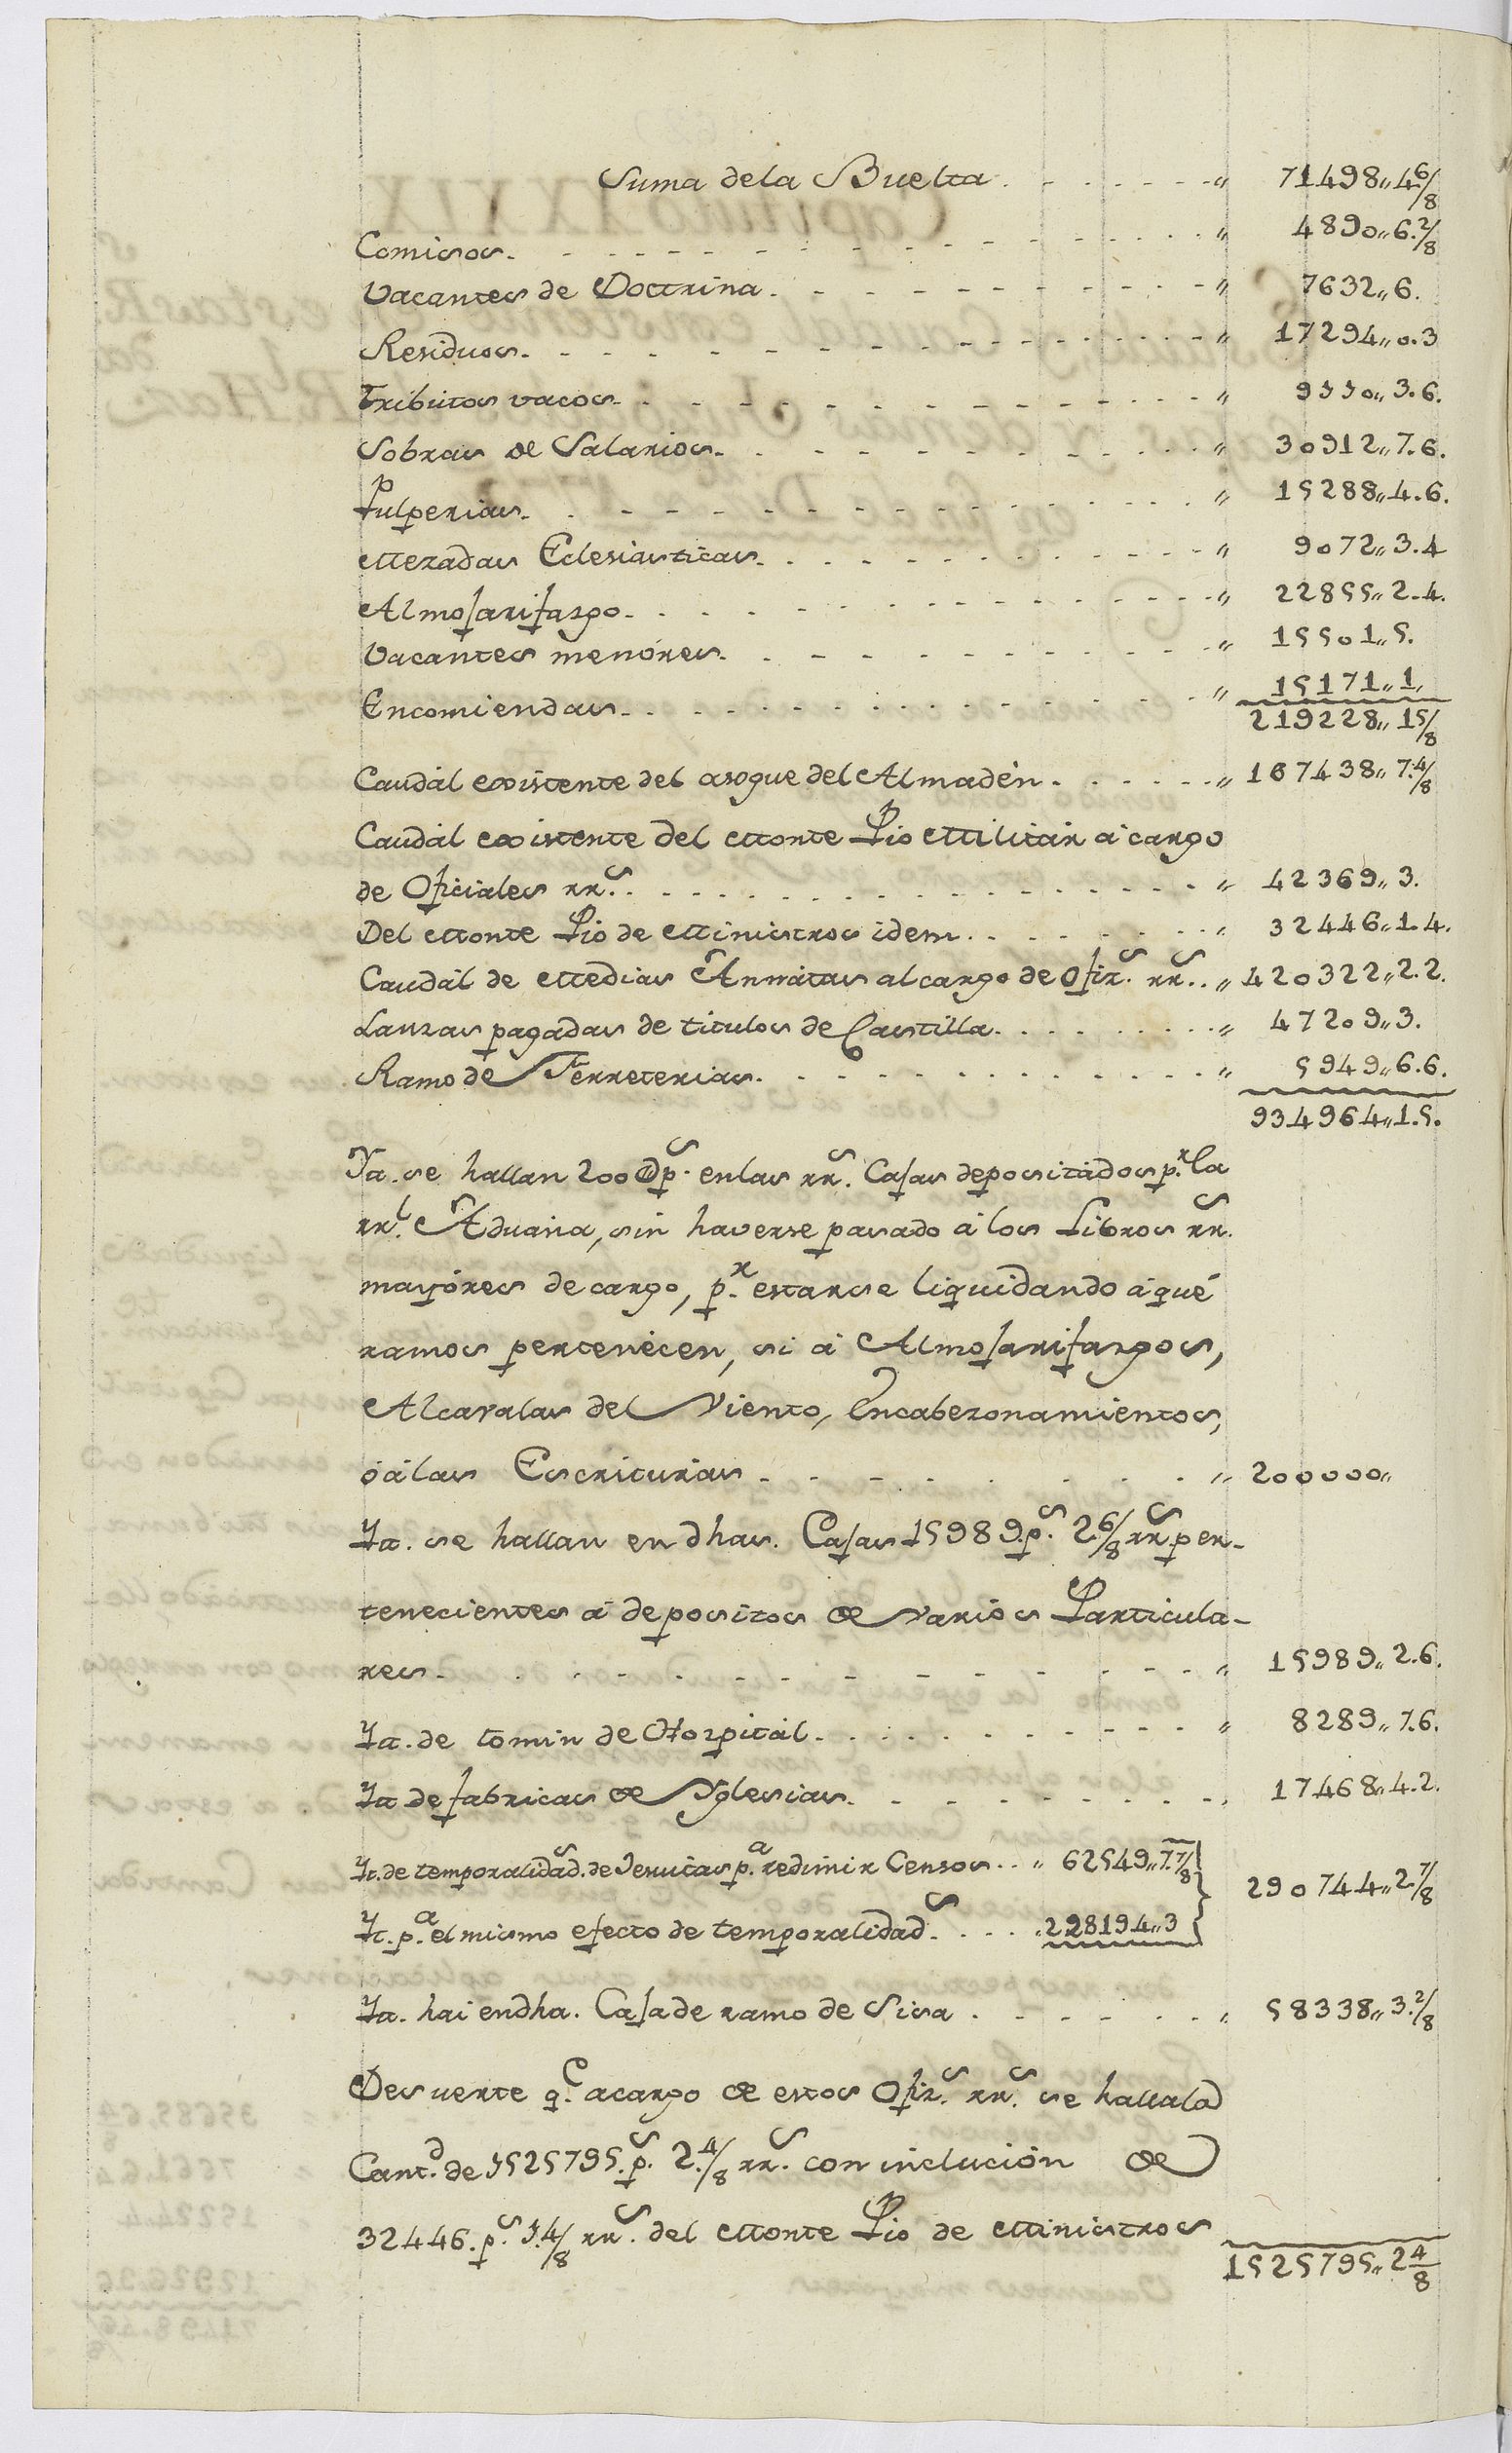 Suma dela Buelta . . . . . . . " 71498,, 4 6/8
Comisos. . . . . . . " 4890,, 6. 2/8
Vacantes de Doctrina. . . . . . . " 7632,, 6.
Residuos. . . . . . . " 17294,, 0.3
Tributos vacos. . . . . . . " 9550,, 3.6.
Sobras de Salarios. . . . . . . " 30912,, 7.6.
Pulperias. . . . . . . " 15288,, 4.6.
Mezadas Eclesiasticas. . . . . . . " 9072,, 3.4
Almojarifazgo. . . . . . . " 22855,, 2.4.
Vacantes menóres. . . . . . . " 15501,, 5.
Encomiendas. . . . . . . " 15171,, 1,
219228,, 1 5/8
Caudál existente del asogue del Almadén . . . . . . " 167438,, 7. 4/8
Caudál existente del Monte Pio Militár á cargo
de Oficiales rr.s . . . . . . . " 42369,, 3.
Del Monte Pio de Ministros idem. . . . . . . " 32446,, 1.4.
Caudál de Medias Annátas al cargo de Ofiz.s rr.s . . " 420322,, 2.2.
Lanzas pagadas de titulos de Castilla. . . . . . . " 47209,, 3.
Ramo de Ferreterias. . . . . . . " 5949,, 6.6.
934964,, 1.5.
Yt. se hallan 200@p.s enlas rr.s Cajas depositádos p.r la
rr.l Aduana, sin haverse pasado á los Libros rr.s
mayóres de cargo, p.r estarse liquidando á qué
ramos pertenécen, si á Almojarifazgos,
Alcavalas del Viento, Encabezonamientos,
ó á las Escrituras . . . . . . . " 200000,,
Yt. se hallan en dhas. Cajas 15989.p.s 2 6/8 rr.s per-
tenecientes á depositos de varios Particula-
res. . . . . . . " 15989,, 2.6.
Yt. de tomin de Hospitál. . . . . . . " 8289,, 7.6.
Yt de fabricas de Yglesias. . . . . . . " 17468,, 4.2.
Yt. de temporalidad.s de Jesuitas p.a redimir Censos . . " 62549,, 7. 7/8
290744,, 2 7/8
Yt. p.a el mismo efecto de temporalidad.s . . . . 228194,, 3
Yt. hai en dha. Caja de ramo de Sisa . . . . . . . " 58338,, 3. 2/8
De suerte q.e acargo de estos Ofiz.s rr.s se halla la
Cant.d de 1525795.p.s 2. 4/8 rr.s con inclución de
32446.p.s 1. 4/8 rr.s del Monte Pio de Ministros
1525795,, 2 4/8